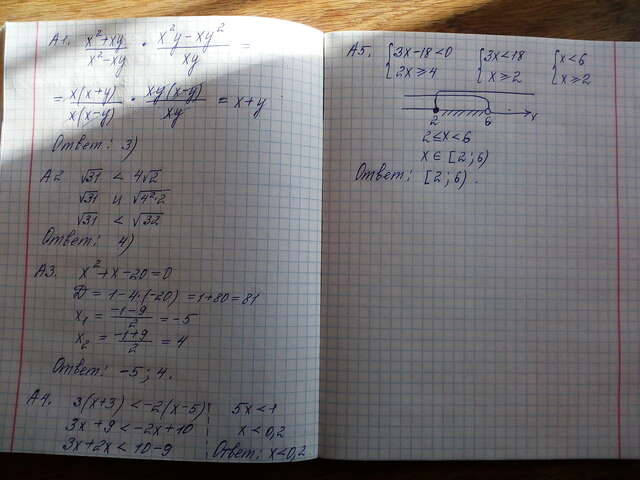 А1. (x²+xy)/(x²-xy) · (x²y-xy²)/(xy) =
= x(x+y)/x(x-y) · xy(x-y)/xy = x+y
Ответ: 3)
А2 √31 < 4√2
√31 и √(4²·2)
√31 < √32
Ответ: 4)
А3. x²+x-20=0
D = 1-4·(-20) = 1+80=81
x₁ = (-1-9)/2 = -5
x₂ = (-1+9)/2 = 4
Ответ: -5; 4.
А4. 3(x+3) < -2(x-5)
3x+9 < -2x+10
3x+2x < 10-9
5x<1
x<0,2
Ответ: x<0,2
А5. {3x-18<0 {3x<18 {x<6
2x≥4 x≥2 x≥2
2 6 x
2≤x<6
x∈[2;6)
Ответ: [2;6).